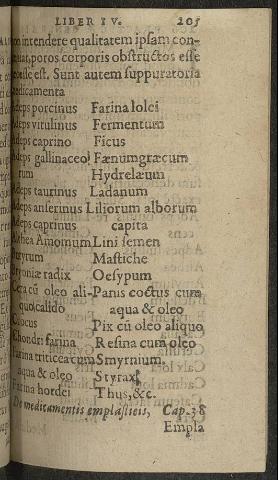 LIBER IV. 205
intendere qualitatem ipsam con-
poros corporis obstructos esse
est. Sunt autem suppuratoria
medicamenta
deps porcinus Farina lolei
deps vitulinus Fermentum
deps caprino Ficus
deps gallinaceo Fænumgræcum
rum Hydrelæum
deps taurinus Ladanum
deps anserinus Liliorum alborum
deps caprinus capita
thea Amomum Lini semen
tyrum Mastiche
ryoniæ radix Oesypum
cera cū oleo ali- Panis coctus cum
quo calido aqua & oleo
Crocus Pix cū oleo aliquo
Chondri farina Resina cum oleo
Farina triticea cum Smyrnium,
aqua & oleo Styrax,
Farina hordei Thus, &c.
De medicamentis emplasticis, Cap. 38
Empla